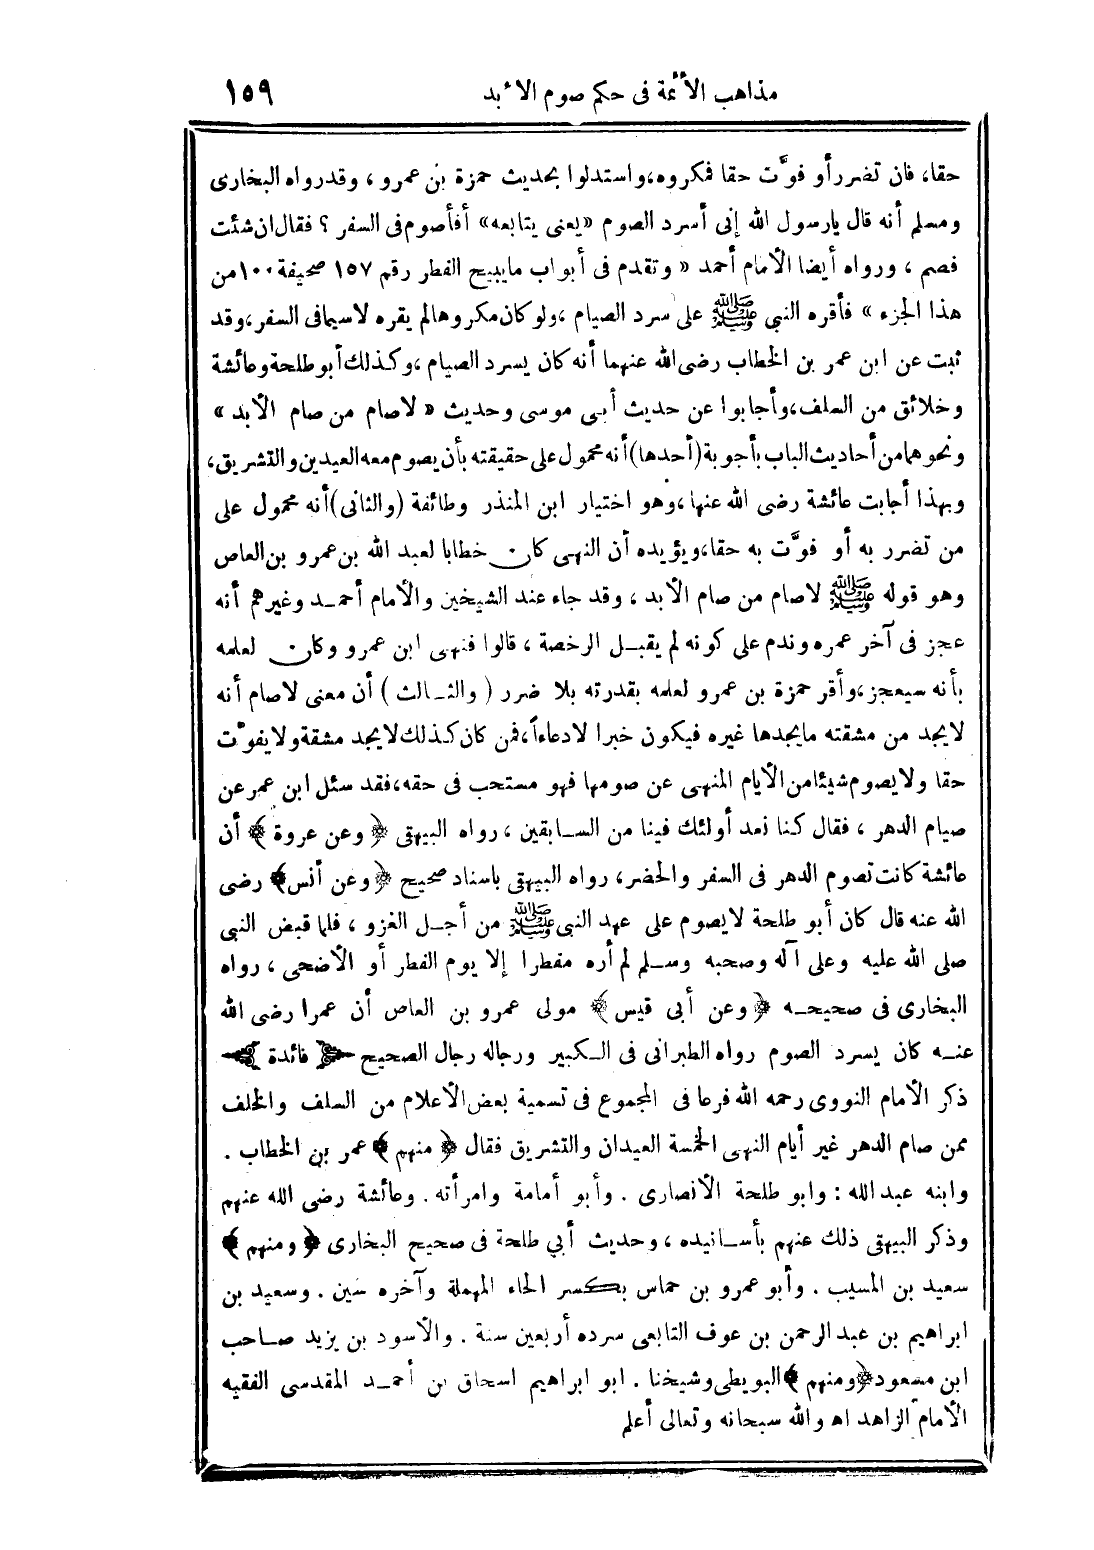 مذاهب الأئمة فى حكم صوم الأبد ١٥٩
حقا، فان تضرر أو فوَّت حقا فمكروه، واستدلوا بحديث حمزة بن عمرو، وقد رواه البخارى
ومسلم أنه قال يارسول الله إنى أسرد الصوم «يعنى يتابعه» أفأصوم فى السفر؟ فقال ان شئت
فصم، ورواه أيضا الأمام أحمد «وتقدم فى أبواب مايبيح الفطر رقم ١٥٧ صحيفة ١٠٠ من
هذا الجزء» فأقره النبى ﷺ على سرد الصيام، ولو كان مكروها لم يقره لاسيما فى السفر، وقد
ثبت عن ابن عمر بن الخطاب رضى الله عنهما أنه كان يسرد الصيام، وكذلك أبو طلحة وعائشة
وخلائق من السلف، وأجابوا عن حديث أبى موسى وحديث «لاصام من صام الأبد»
ونحوهما من أحاديث الباب بأجوبة (أحدها) أنه محمول على حقيقته بأن يصوم معه العيدين والتشريق،
وبهذا أجابت عائشة رضى الله عنها، وهو اختيار ابن المنذر وطائفة (والثانى) أنه محمول على
من تضرر به أو فوَّت به حقا، ويؤيده أن النهى كان خطابا لعبد الله بن عمرو بن العاص
وهو قوله ﷺ لاصام من صام الأبد، وقد جاء عند الشيخين والأمام أحمـد وغيرهم أنه
عجز فى آخر عمره وندم على كونه لم يقبـل الرخصة، قالوا فنهى ابن عمرو وكان لعلمه
بأنه سيعجز، وأقر حمزة بن عمرو لعلمه بقدرته بلا ضرر (والثـالث) أن معنى لاصام أنه
لايجد من مشقته مايجدها غيره فيكون خبرا لادعاءاً، فمن كان كذلك لايجد مشقة ولايفوّت
حقا ولا يصوم شيئا من الأيام المنهى عن صومها فهو مستحب فى حقه، فقد سئل ابن عمر عن
صيام الدهر، فقال كنا نعد أولئك فينا من السـابقين، رواه البيهقى ﴿وعن عروة﴾ أن
عائشة كانت تصوم الدهر فى السفر والحضر، رواه البيهقى باسناد صحيح ﴿وعن أنس﴾ رضى
الله عنه قال كان أبو طلحة لايصوم على عهد النبى ﷺ من أجـل الغزو، فلما قبض النبى
صلى الله عليه وعلى آله وصحبه وسـلم لم أره مفطرا إلا يوم الفطر أو الأضحى، رواه
البخارى فى صحيحـه ﴿وعن أبى قيس﴾ مولى عمرو بن العاص أن عمرا رضى الله
عنـه كان يسرد الصوم رواه الطبرانى فى الـكبير ورجاله رجال الصحيح ﴿فائدة﴾
ذكر الأمام النووى رحمه الله فرعا فى المجموع فى تسمية بعض الأعلام من السلف والخلف
ممن صام الدهر غير أيام النهى الخمسة العيدان والتشريق فقال ﴿منهم﴾ عمر بن الخطاب.
وابنه عبد الله: وابو طلحة الأنصارى. وأبو أمامة وامرأته. وعائشة رضى الله عنهم
وذكر البيهقى ذلك عنهم بأسـانيده، وحديث أبي طلحة فى صحيح البخارى ﴿ومنهم﴾
سعيد بن المسيب. وأبو عمرو بن حماس بكسر الحاء المهملة وآخره سين. وسعيد بن
ابراهيم بن عبد الرحمن بن عوف التابعى سرده أربعين سنة. والأسود بن يزيد صـاحب
ابن مسعود ﴿ومنهم﴾ البويطى وشيخنا. ابو ابراهيم اسحاق بن أحمـد المقدسى الفقيه
الأمام الزاهد اه والله سبحانه وتعالى أعلم